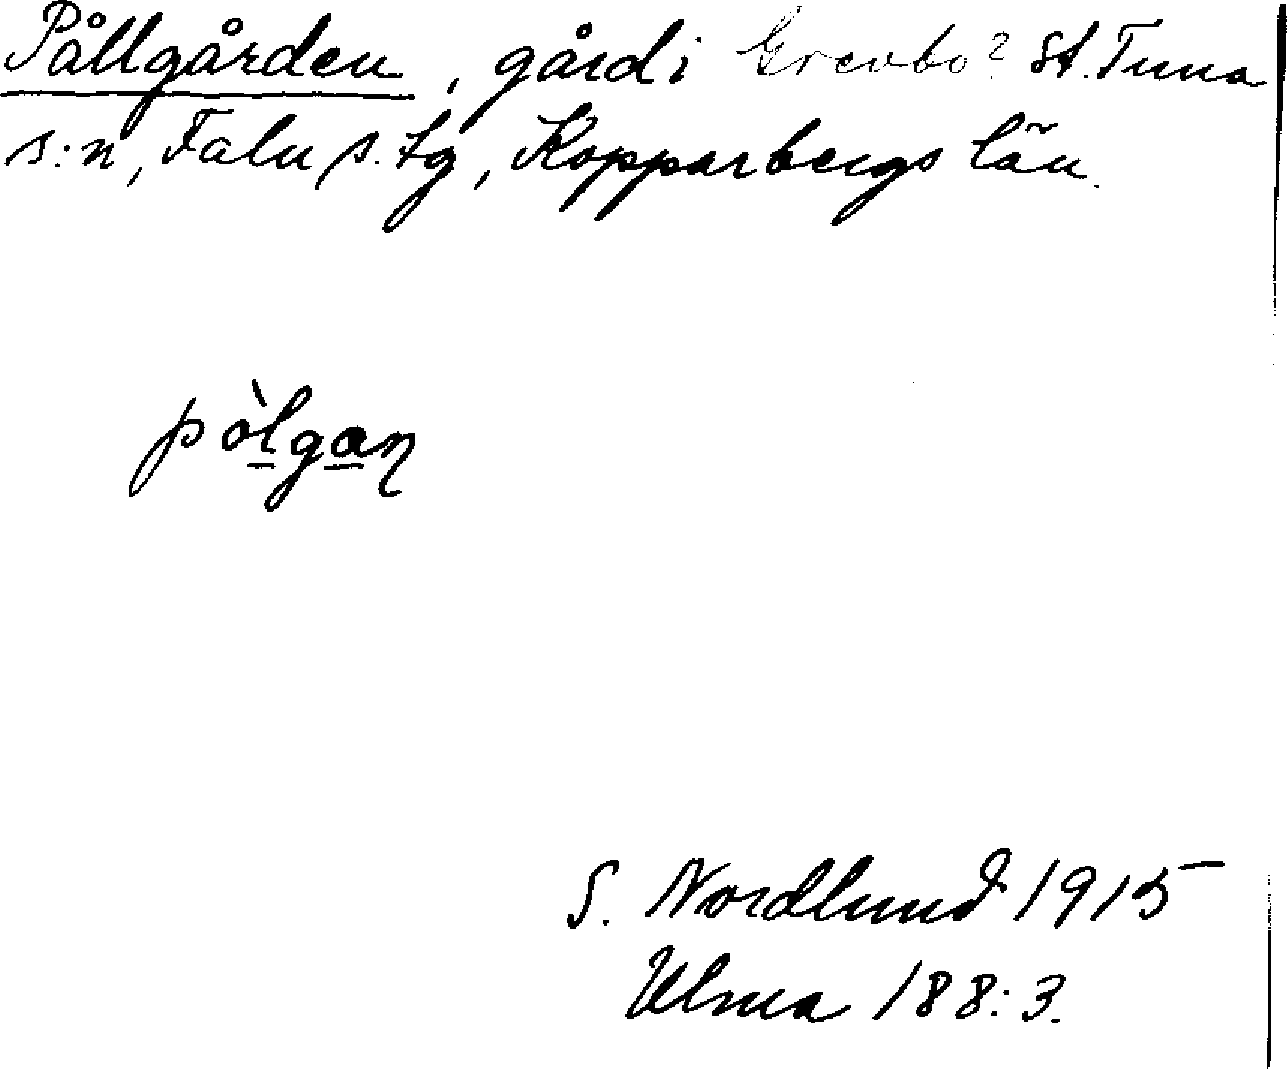 Pållgården, gård i Grevbo? St. Tuna
s:n, Falu s. tg, Kopparbergs län.
pòlgaɳ
S. Nordlund 1915
Ulma 188:3.